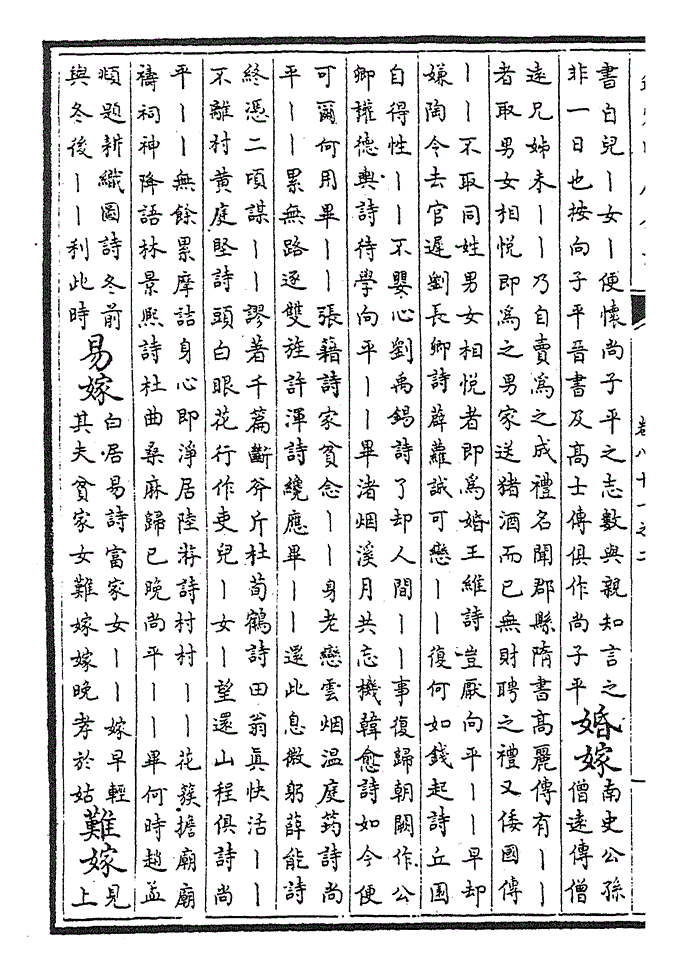 書白兒丨女丨便懷尚子平之志數與親知言之
非一日也按向子平晉書及髙士傳俱作尚子平
婚嫁
南史公孫
僧逺傳僧
逺兄姊未丨丨乃自賣為之成禮名聞郡縣隋書髙麗傳有丨丨
者取男女相悅即為之男家送猪酒而已無財聘之禮又倭國傳
丨丨不取同姓男女相悅者即為婚王維詩豈厭向平丨丨早却
嫌陶令去官遲劉長卿詩薜蘿誠可戀丨丨復何如錢起詩丘園
自得性丨丨不嬰心劉禹錫詩了却人間丨丨事復歸朝闕作公
卿權德輿詩待學向平丨丨畢渚烟溪月共忘機韓愈詩如今便
可爾何用畢丨丨張籍詩家貧念丨丨身老戀雲烟温庭筠詩尚
平丨丨累無路逐雙旌許渾詩纔應畢丨丨還此息微躬薛能詩
終憑二頃謀丨丨謬著千篇斷斧斤杜荀鶴詩田翁真快活丨丨
不離村黄庭堅詩頭白眼花行作吏兒丨女丨望還山程俱詩尚
平丨丨無餘累摩詰身心即淨居陸游詩村村丨丨花簇擔廟廟
禱祠神降語林景熙詩杜曲桑麻歸已晚尚平丨丨畢何時趙孟
頫題耕織圖詩冬前
與冬後丨丨利此時
易嫁
白居易詩富家女丨丨嫁早輕
其夫貧家女難嫁嫁晚孝於姑
難嫁
見
上